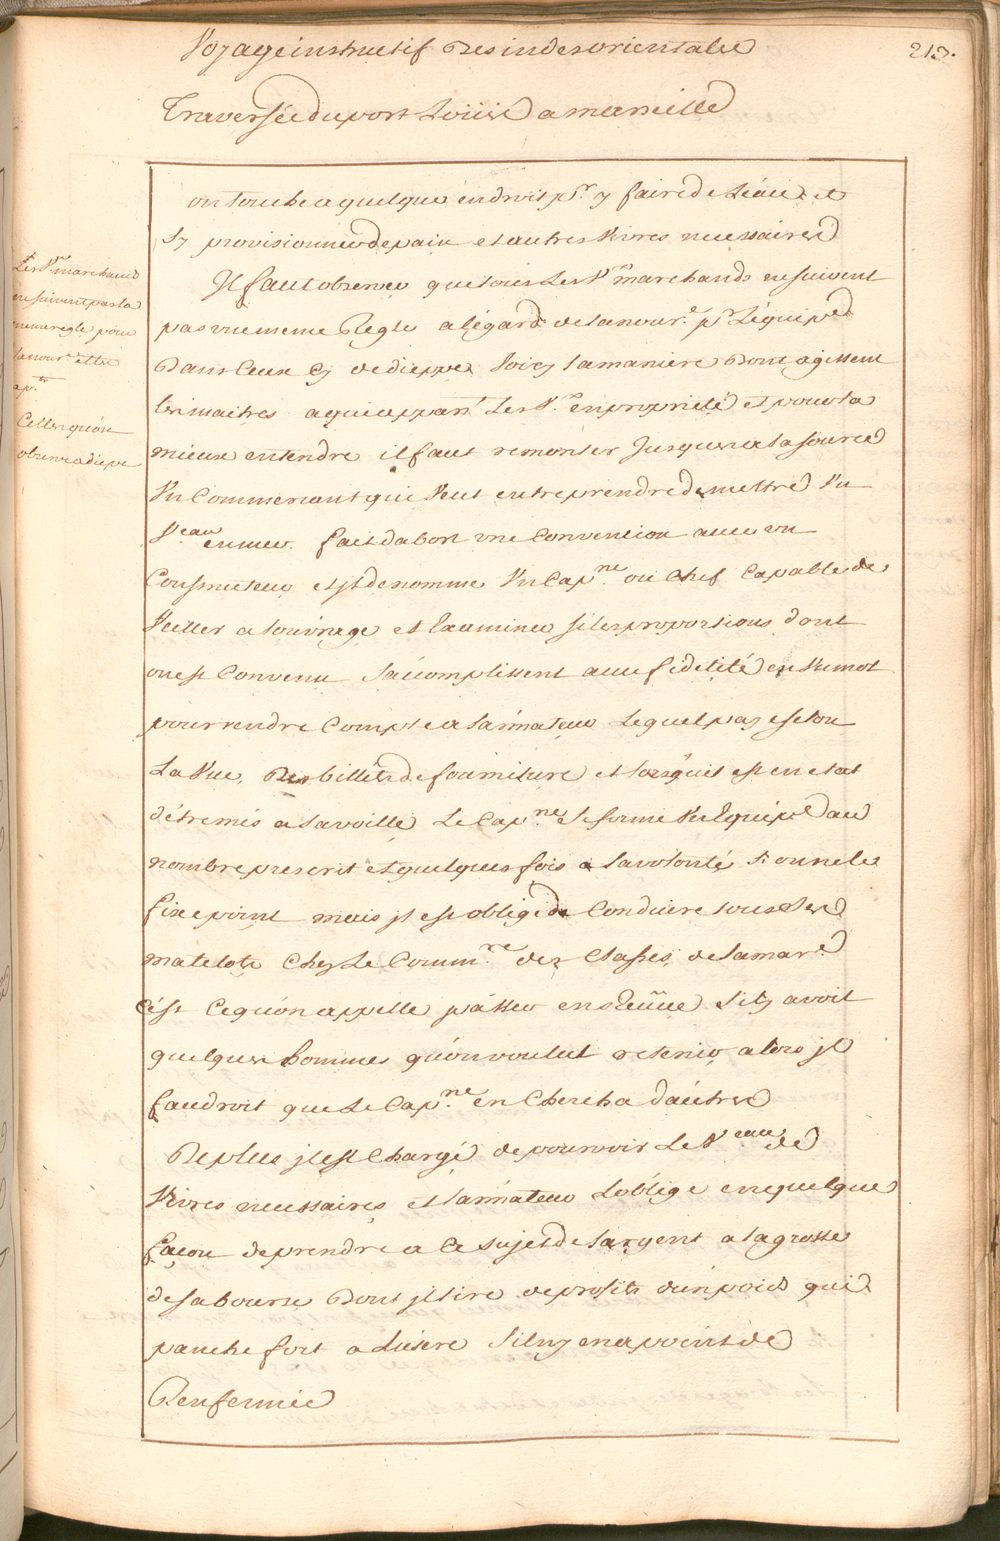 Voyage instructif Des indes orientales
213.
Traversée du port Loüis a marseille
on touche a quelque endroit pr. y faire de L'eau et
s'y provisionner de pain et autres vivres necessaires
Les Vx marchands
ne suivent pas la
meme regle pour
la nourre. et les
apts.
Celles qu'on
observe a diepe
Il faut observer que tous Les Vx marchands ne suivent
pas une meme Regle a l'égard de la nourre. pr L'équipe
Dans Ceux Cy de dieppe Voicy la maniere Dont agissent
les maitres a qui appart. Les Vx en proprieté et pour la
mieux entendre il faut remonter Jusques a la source
Un Commercant qui Veut entreprendre de mettre Un
Veau en mer fait d'abort une Convention avec un
Constructeur et jl denomme Un Capne. ou Chef Capable de
Veiller a l'ouvrage et Examiner si les proportions dont
on est Convenu s'accomplissent avec fidelité en Un mot
pour rendre Compte a L'armateur Lequel paye selon
La Vue Des billets de fourniture et lors qu'il est en etat
d'étre mis a la voille Le Capne. se forme Un Equipe au
nombre prescrit et quelques fois a sa volonté si on ne le
fixe point mais jl est obligé de Conduire tous Les
matelots Chez Le Commre. des Classes de la mare.
C'est Ce qu'on appelle passer en reveüe s'il y avoit
quelques hommes qu'on voulut retenir alors jl
faudroit que Le Capne. en Chercha d'autres
De plus jl est Chargé de pourvoir Le Veau de
Vivres necessaires et L'armateur L'oblige en quelque
façon de prendre a Ce sujet de L'argent a la grosse
de sa bourse Dont jl tire de profits d'un poids qui
panche fort a L'usure s'il n'y en a point de
Renfermée